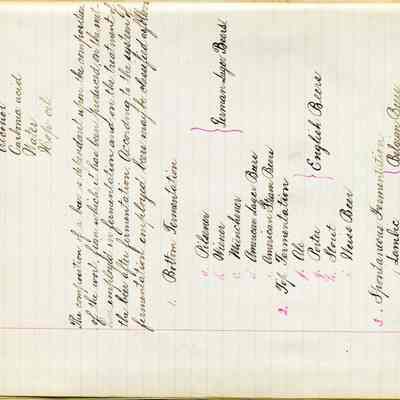 Carbonic acid
Water
Hops oil
The composition of a beer is dependant upon the composition
of the wort, from which it has been produced, on the
employed in fermentation and on the treatment of
the beer after fermentation. According to the system of
fermentation employed, beers may be classified as follows
1. Bottom Fermentation
a. Pilsener
b. Wiener
c. Münchener
German Lager Beers
American Lager Beers
American Steam Beers
2. Top Fermentation
Ale
Porter
Stout
English Beers
Weiss Beer
3. Spontaneous Fermentation
Lambic
Belgian Beers